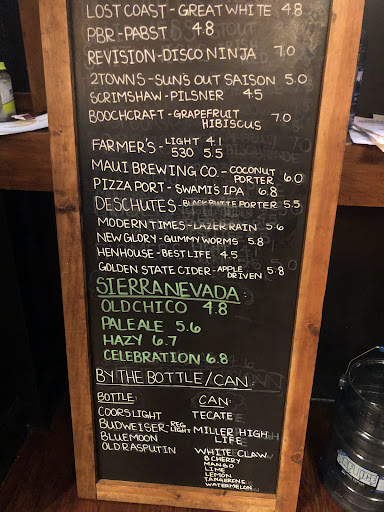 LOST COAST - GREAT WHITE 4.8
PBR - PABST 4.8
REVISION - DISCO NINJA 7.0
2TOWNS - SUN'S OUT SAISON 5.0
SCRIMSHAW - PILSNER 4.5
BOOCHCRAFT - GRAPEFRUIT HIBISCUS 7.0
FARMER'S - LIGHT 4.1
530 5.5
MAUI BREWING CO. - COCONUT PORTER 6.0
PIZZA PORT - SWAMI'S IPA 6.8
DESCHUTES - BLACK BUTTE PORTER 5.5
MODERN TIMES - LAZER RAIN 5.6
NEW GLORY - GUMMY WORMS 5.8
HENHOUSE - BEST LIFE 4.5
GOLDEN STATE CIDER - APPLE DRIVEN 5.8
SIERRA NEVADA:
OLD CHICO 4.8
PALE ALE 5.6
HAZY 6.7
CELEBRATION 6.8
BY THE BOTTLE/CAN:
BOTTLE:
COORS LIGHT
BUDWEISER - REG. LIGHT
BLUE MOON
OLD RASPUTIN
CAN:
TECATE
MILLER HIGH LIFE
WHITE CLAW
B CHERRY
MANGO
LIME
LEMON
TANGERINE
WATERMELON